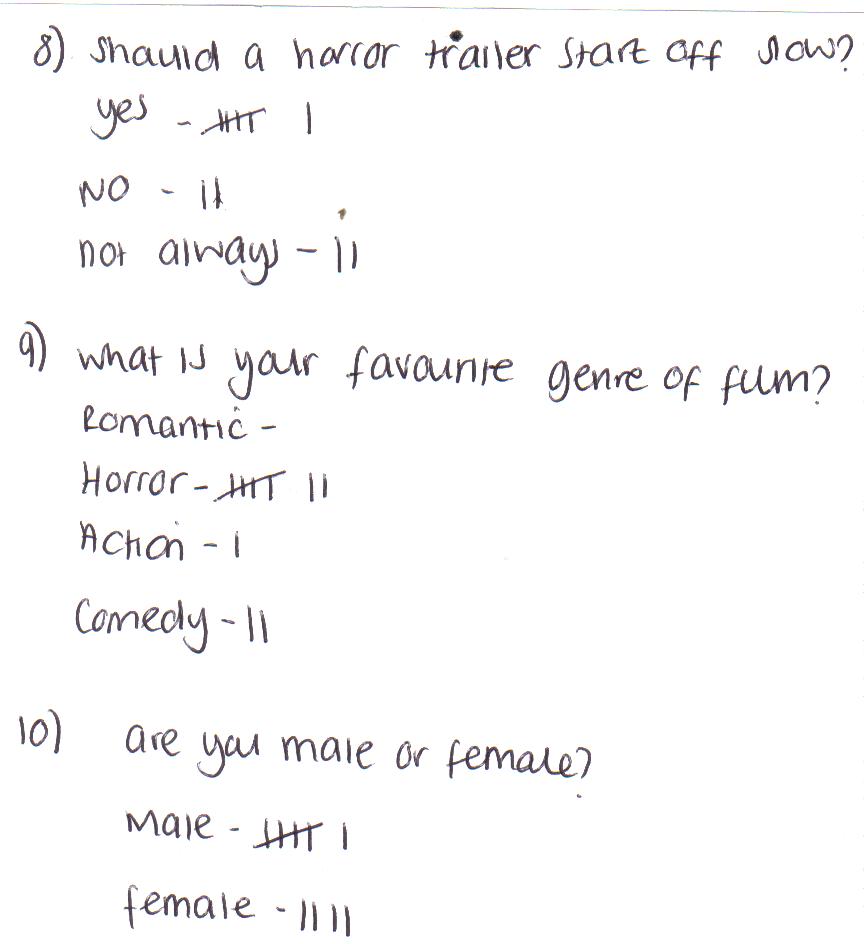 8) should a horror trailer start off slow?
yes - 卌 I
NO - II
not always - II
9) what is your favourite genre of film?
Romantic -
Horror - 卌 II
Action - I
Comedy - II
10) are you male or female?
Male - 卌 I
female - IIII